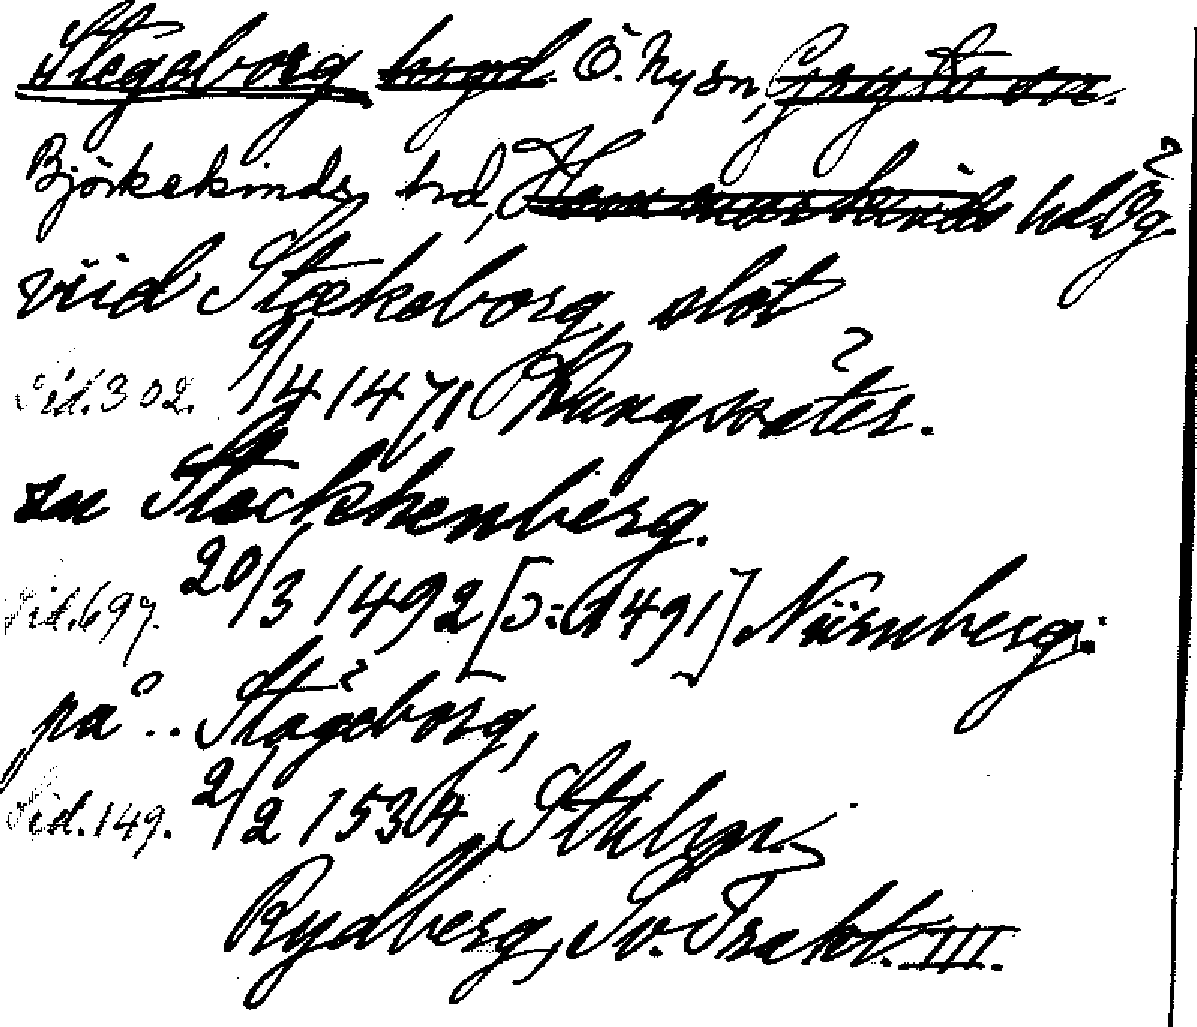 Stegeborg ~~bugd~~ Ö. Ny sn, ~~Gryts sn.~~
Björkekinds hd, ~~Hammarkinds~~ hd. Ög.
viid Stækeborg slot
Sid. 302. 9/4 1471 Kungsäter.
zu Stockhenberg.
Sid. 697. 20/3 1492 [ɔ: 1491] Nürnberg.
på .. Stägeborg,
Sid. 149. 2/2 1534 Sthlm,
Rydberg, Sv. Trakt. III.